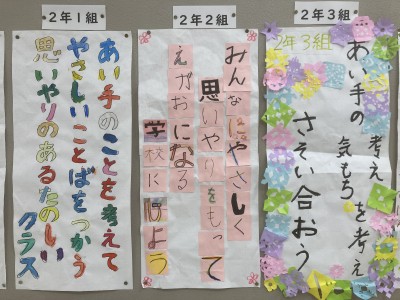 2年1組
あい手のことを考えて
やさしいことばをつかう
思いやりのあるたのしい
クラス
2年2組
みんなにやさしく
思いやりをもって
えがおになる
学校にしよう
2年3組
2年3組
あい手の
考え
気もち
を考え
さそい合おう